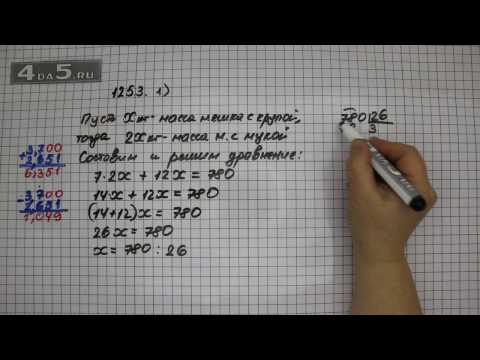 4DA5.RU
1253. 1)
Пусть х кг - масса мешка с крупой,
тогда 2х кг - масса м. с мукой
Составим и решим уравнение:
7·2х + 12х = 780
14х + 12х = 780
(14+12)х = 780
26х = 780
х = 780 : 26
+3,700
2,651
6,351
-3,700
2,651
1,049
780 26
3